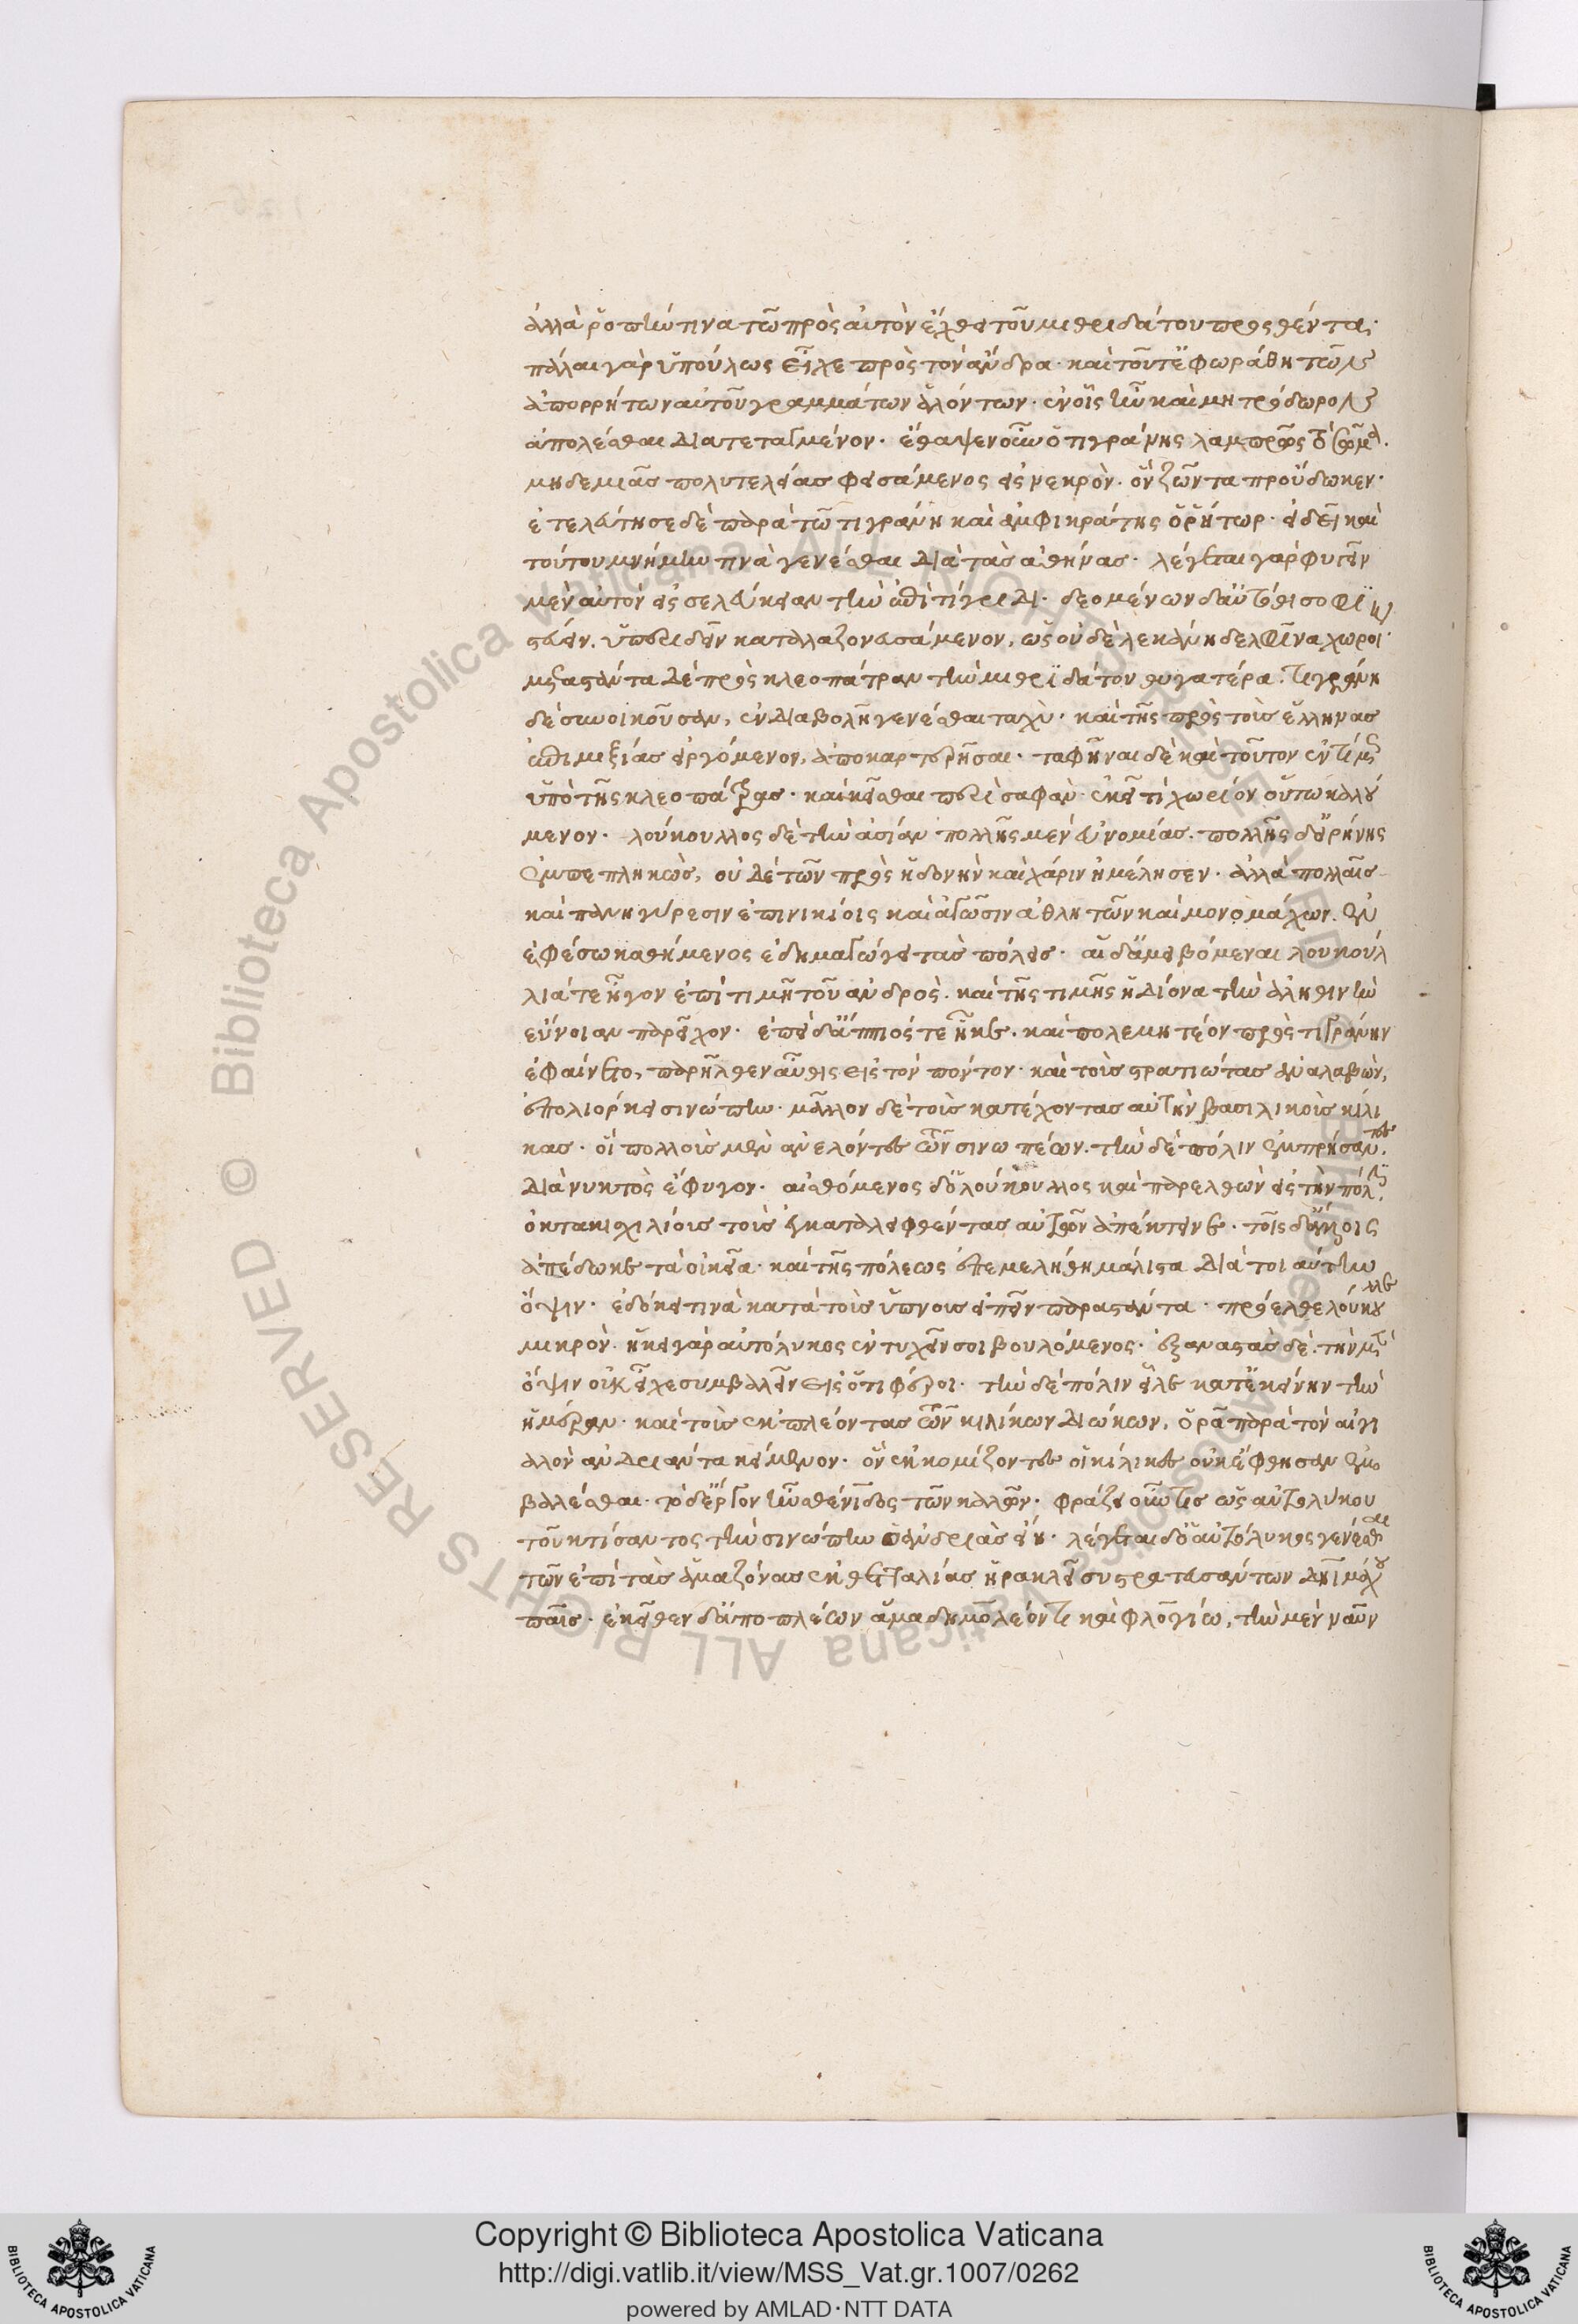 ἀλλὰ ῥοπήν τινα τῶ πρὸς αὐτὸν ἔχθει τοῦ μιθριδάτου προσθέντα·
πάλαι γὰρ ὑπούλως εἶχε πρὸς τὸν ἄνδρα· καὶ τοῦτ' ἐφωράθη τῶν
ἀπορρήτων αὐτοῦ γραμμάτων ἁλόντων· ἐν οἷς ἦν καὶ μητρόδωρον
ἀπολέσθαι διατεταγμένον· ἔθαψεν οὖν ὁ τιγράνης λαμπρῶς τὸ σῶμα·
μηδεμιᾶς πολυτελείας φεισάμενος εἰς νεκρὸν· ὃν ζῶντα προὔδωκεν·
ἐτελεύτησε δὲ παρὰ τῶ τιγράνη καὶ ἀμφικράτης ὁ ῥήτωρ· εἰ δεῖ καὶ
τούτου μνήμην τινὰ γενέσθαι διὰ τὰς ἀθήνας· λέγεται γὰρ φυγεῖν
μὲν αὐτὸν εἰς σελεύκειαν τὴν ἐπὶ τίγρει· δεομένων δ' αὐτόθι σοφι
στεύειν· ὑπεριδεῖν καταλαζονευσάμενον, ὡς οὐδὲ λεκάνη δελφῖνα χωροί·
μεταστάντα δὲ πρὸς κλεοπάτραν τὴν μιθριδάτου θυγατέρα· τιγράνη
δὲ συνοικοῦσαν, ἐν διαβολῆ γενέσθαι ταχὺ· καὶ τῆς πρὸς τοὺς ἕλληνας
ἐπιμιξίας εἰργόμενον, ἀποκαρτερῆσαι· ταφῆναι δὲ καὶ τοῦτον ἐντίμως
ὑπὸ τῆς κλεοπάτρας· καὶ κεῖσθαι περὶ σαφὰν· ἐκεῖ τι χωρίον οὕτω καλού
μενον· λούκουλλος δὲ τὴν ἀσίαν πολλῆς μὲν εὐνομίας· πολλῆς δ' εἰρήνης
ἐμπεπληκὼς, οὐδὲ τῶν πρὸς ἡδονὴν καὶ χάριν ἠμέλησεν· ἀλλὰ πολλαῖς
καὶ πανηγύρεσιν ἐπινικίοις καὶ ἀγῶσιν ἀθλητῶν καὶ μονομάχων· ἐν
ἐφέσω καθήμενος ἐδημαγώγει τὰς πόλεις· αἱ δ' ἀμειβόμεναι λουκούλ
λιά τε ἦγον ἐπὶ τιμῆ τοῦ ἀνδρὸς· καὶ τῆς τιμῆς ἡδίονα τὴν ἀληθινὴν
εὔνοιαν παρεῖχον· ἐπεὶ δ' ἄππιός τε ἧκε· καὶ πολεμητέον πρὸς τιγράνην
ἐφαίνετο, παρῆλθεν αὖθις εἰς τὸν πόντον· καὶ τοὺς στρατιώτας ἀναλαβὼν,
ἐπολιόρκει σινώπην· μᾶλλον δὲ τοὺς κατέχοντας αὐτὴν βασιλικοὺς κίλι
κας· οἳ πολλοὺς μὲν ἀνελόντες τῶν σινωπέων· τὴν δὲ πόλιν ἐμπρήσαντες·
διὰ νυκτὸς ἔφυγον· αἰσθόμενος δ' ὁ λούκουλλος καὶ παρελθὼν εἰς τὴν πόλιν·
ὀκτακισχιλίους τοὺς ἐγκαταλειφθέντας αὐτῶν ἀπέκτεινε· τοῖς δ' ἄλλοις
ἀπέδωκε τὰ οἰκεῖα· καὶ τῆς πόλεως ἐπεμελήθη μάλιστα διὰ τοιαύτην
ὄψιν· ἐδόκει τινὰ κατὰ τοὺς ὕπνους εἰπεῖν παραστάντα· πρόελθε λούκουλλε
μικρὸν· ἥκει γὰρ αὐτόλυκος ἐντυχεῖν σοι βουλόμενος· ἐξαναστὰς δὲ· τὴν μὲν
ὄψιν οὐκ εἶχε συμβαλεῖν εἰς ὅ τι φέροι· τὴν δὲ πόλιν εἷλε κατ' ἐκείνην τὴν
ἡμέραν· καὶ τοὺς ἐκπλέοντας τῶν κιλίκων διώκων, ὁρᾶ παρὰ τὸν αἰγι
αλὸν ἀνδριάντα κείμενον· ὃν ἐκκομίζοντες οἱ κίλικες οὐκ ἔφθησαν ἐμ
βαλέσθαι· τὸ δ' ἔργον ἦν σθένιδος τῶν καλῶν· φράζει οὖν τις ὡς αὐτολύκου
τοῦ κτίσαντος τὴν σινώπην ὁ ἀνδριὰς εἴη· λέγεται δ' ὁ αὐτόλυκος γενέσθαι
τῶν ἐπὶ τὰς ἀμαζόνας ἐκ θετταλίας ἡρακλεῖ συστρατευσάντων δηϊμάχου
παῖς· ἐκεῖθεν δ' ἀποπλέων ἅμα δημολέοντι καὶ φλογίω, τὴν μὲν ναῦν